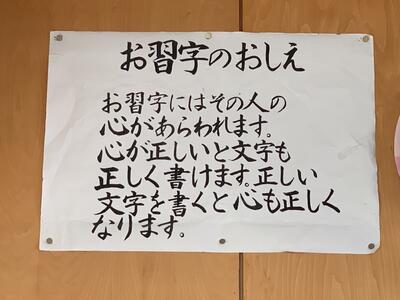 お習字のおしえ
お習字にはその人の
心があらわれます。
心が正しいと文字も
正しく書けます。正しい
文字を書くと心も正しく
なります。